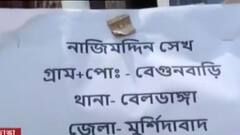 নাজিমদ্দিন সেখ
গ্রাম+পোঃ - বেগুনবাড়ি
থানা- বেলডাঙ্গা
জেলা- মুর্শিদাবাদ